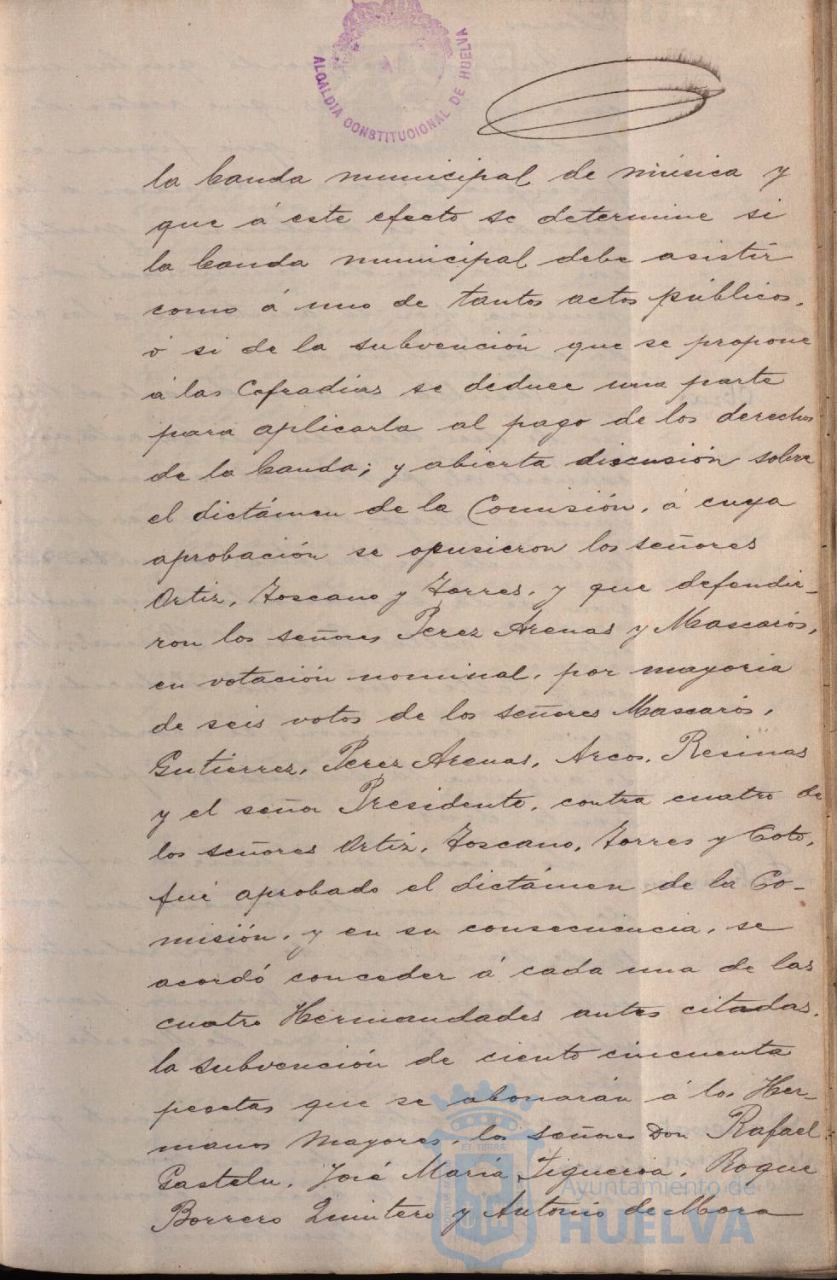 ALCALDÍA CONSTITUCIONAL DE HUELVA
la banda municipal de música y
que á este efecto se determine si
la banda municipal debe asistir
como á uno de tantos actos públicos,
ó si de la subvención que se propone
á las Cofradías se deduce una parte
para aplicarla al pago de los derechos
de la banda; y abierta discusión sobre
el dictámen de la Comisión, á cuya
aprobación se opusieron los señores
Ortiz, Toscano y Torres, y que defendie-
ron los señores Perez Arenas y Mascarós,
en votación nominal, por mayoria
de seis votos de los señores Mascarós,
Gutierrez, Perez Arenas, Arcos, Resinas
y el señor Presidente, contra cuatro de
los señores Ortiz, Toscano, Torres y Coto,
fué aprobado el dictámen de la Co-
misión, y en su consecuencia, se
acordó conceder á cada una de las
cuatro Hermandades antes citadas,
la subvención de ciento cincuenta
pesetas que se abonarán á los Her-
manos Mayores, los señores Don Rafael
Gastelu, José María Figueroa, Roque
Borrero Quintero y Antonio de Mora
Ayuntamiento de
HUELVA